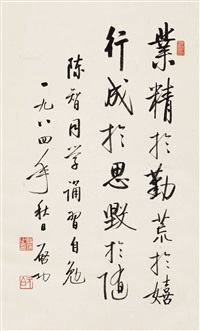 業精於勤荒於嬉
行成於思毀於随
陈智同学诵習自勉
一九八四年秋日启功